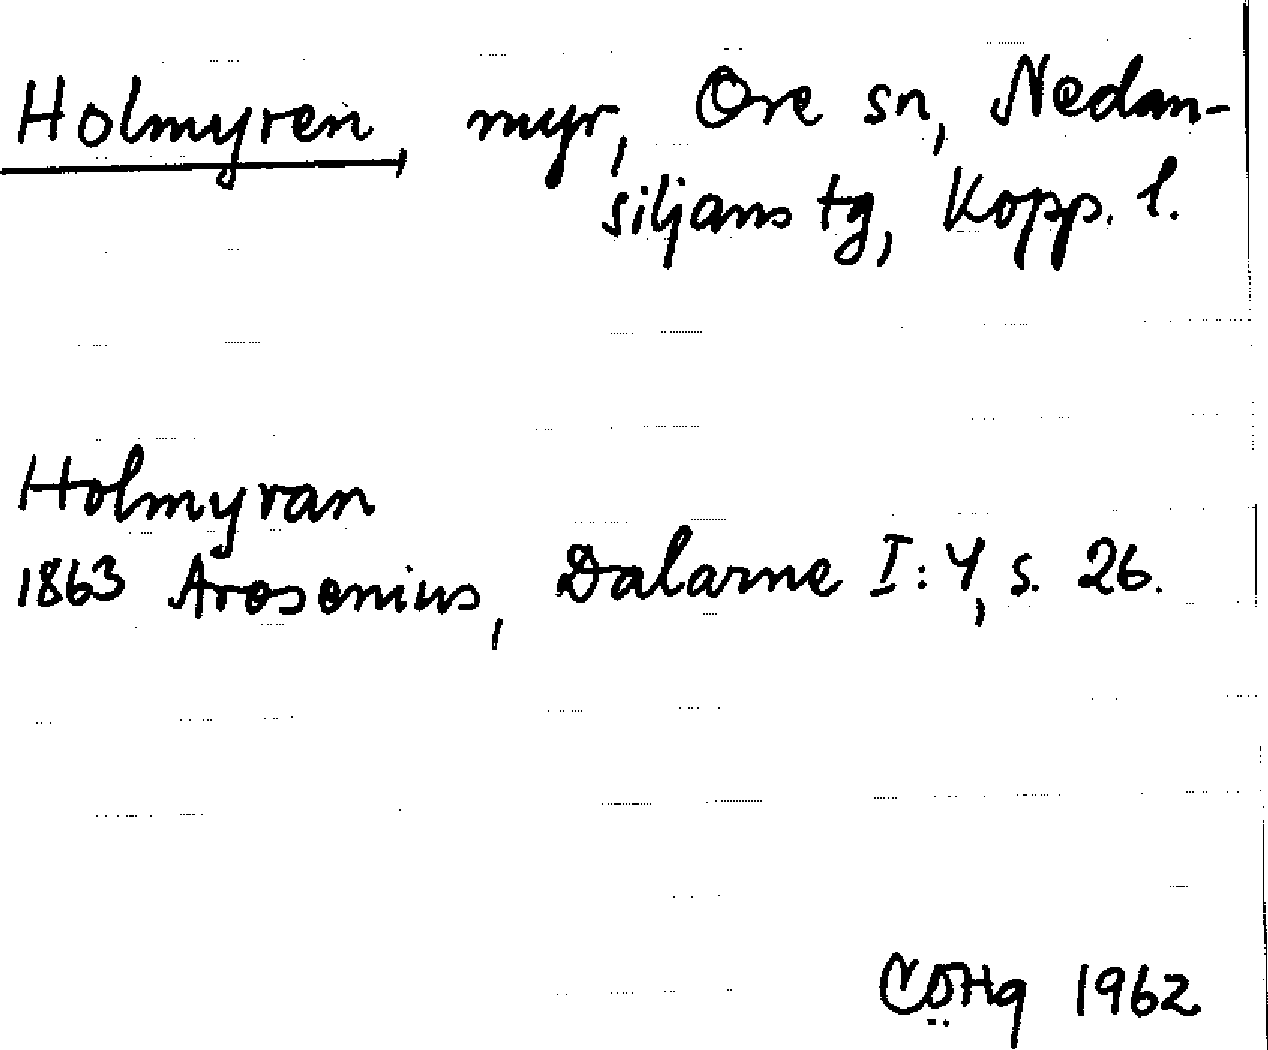 Holmyren, myr, Ore sn, Nedan-
siljans tg, Kopp. l.
Holmyran
1863 Arosenius, Dalarne I: 4, s. 26.
1962